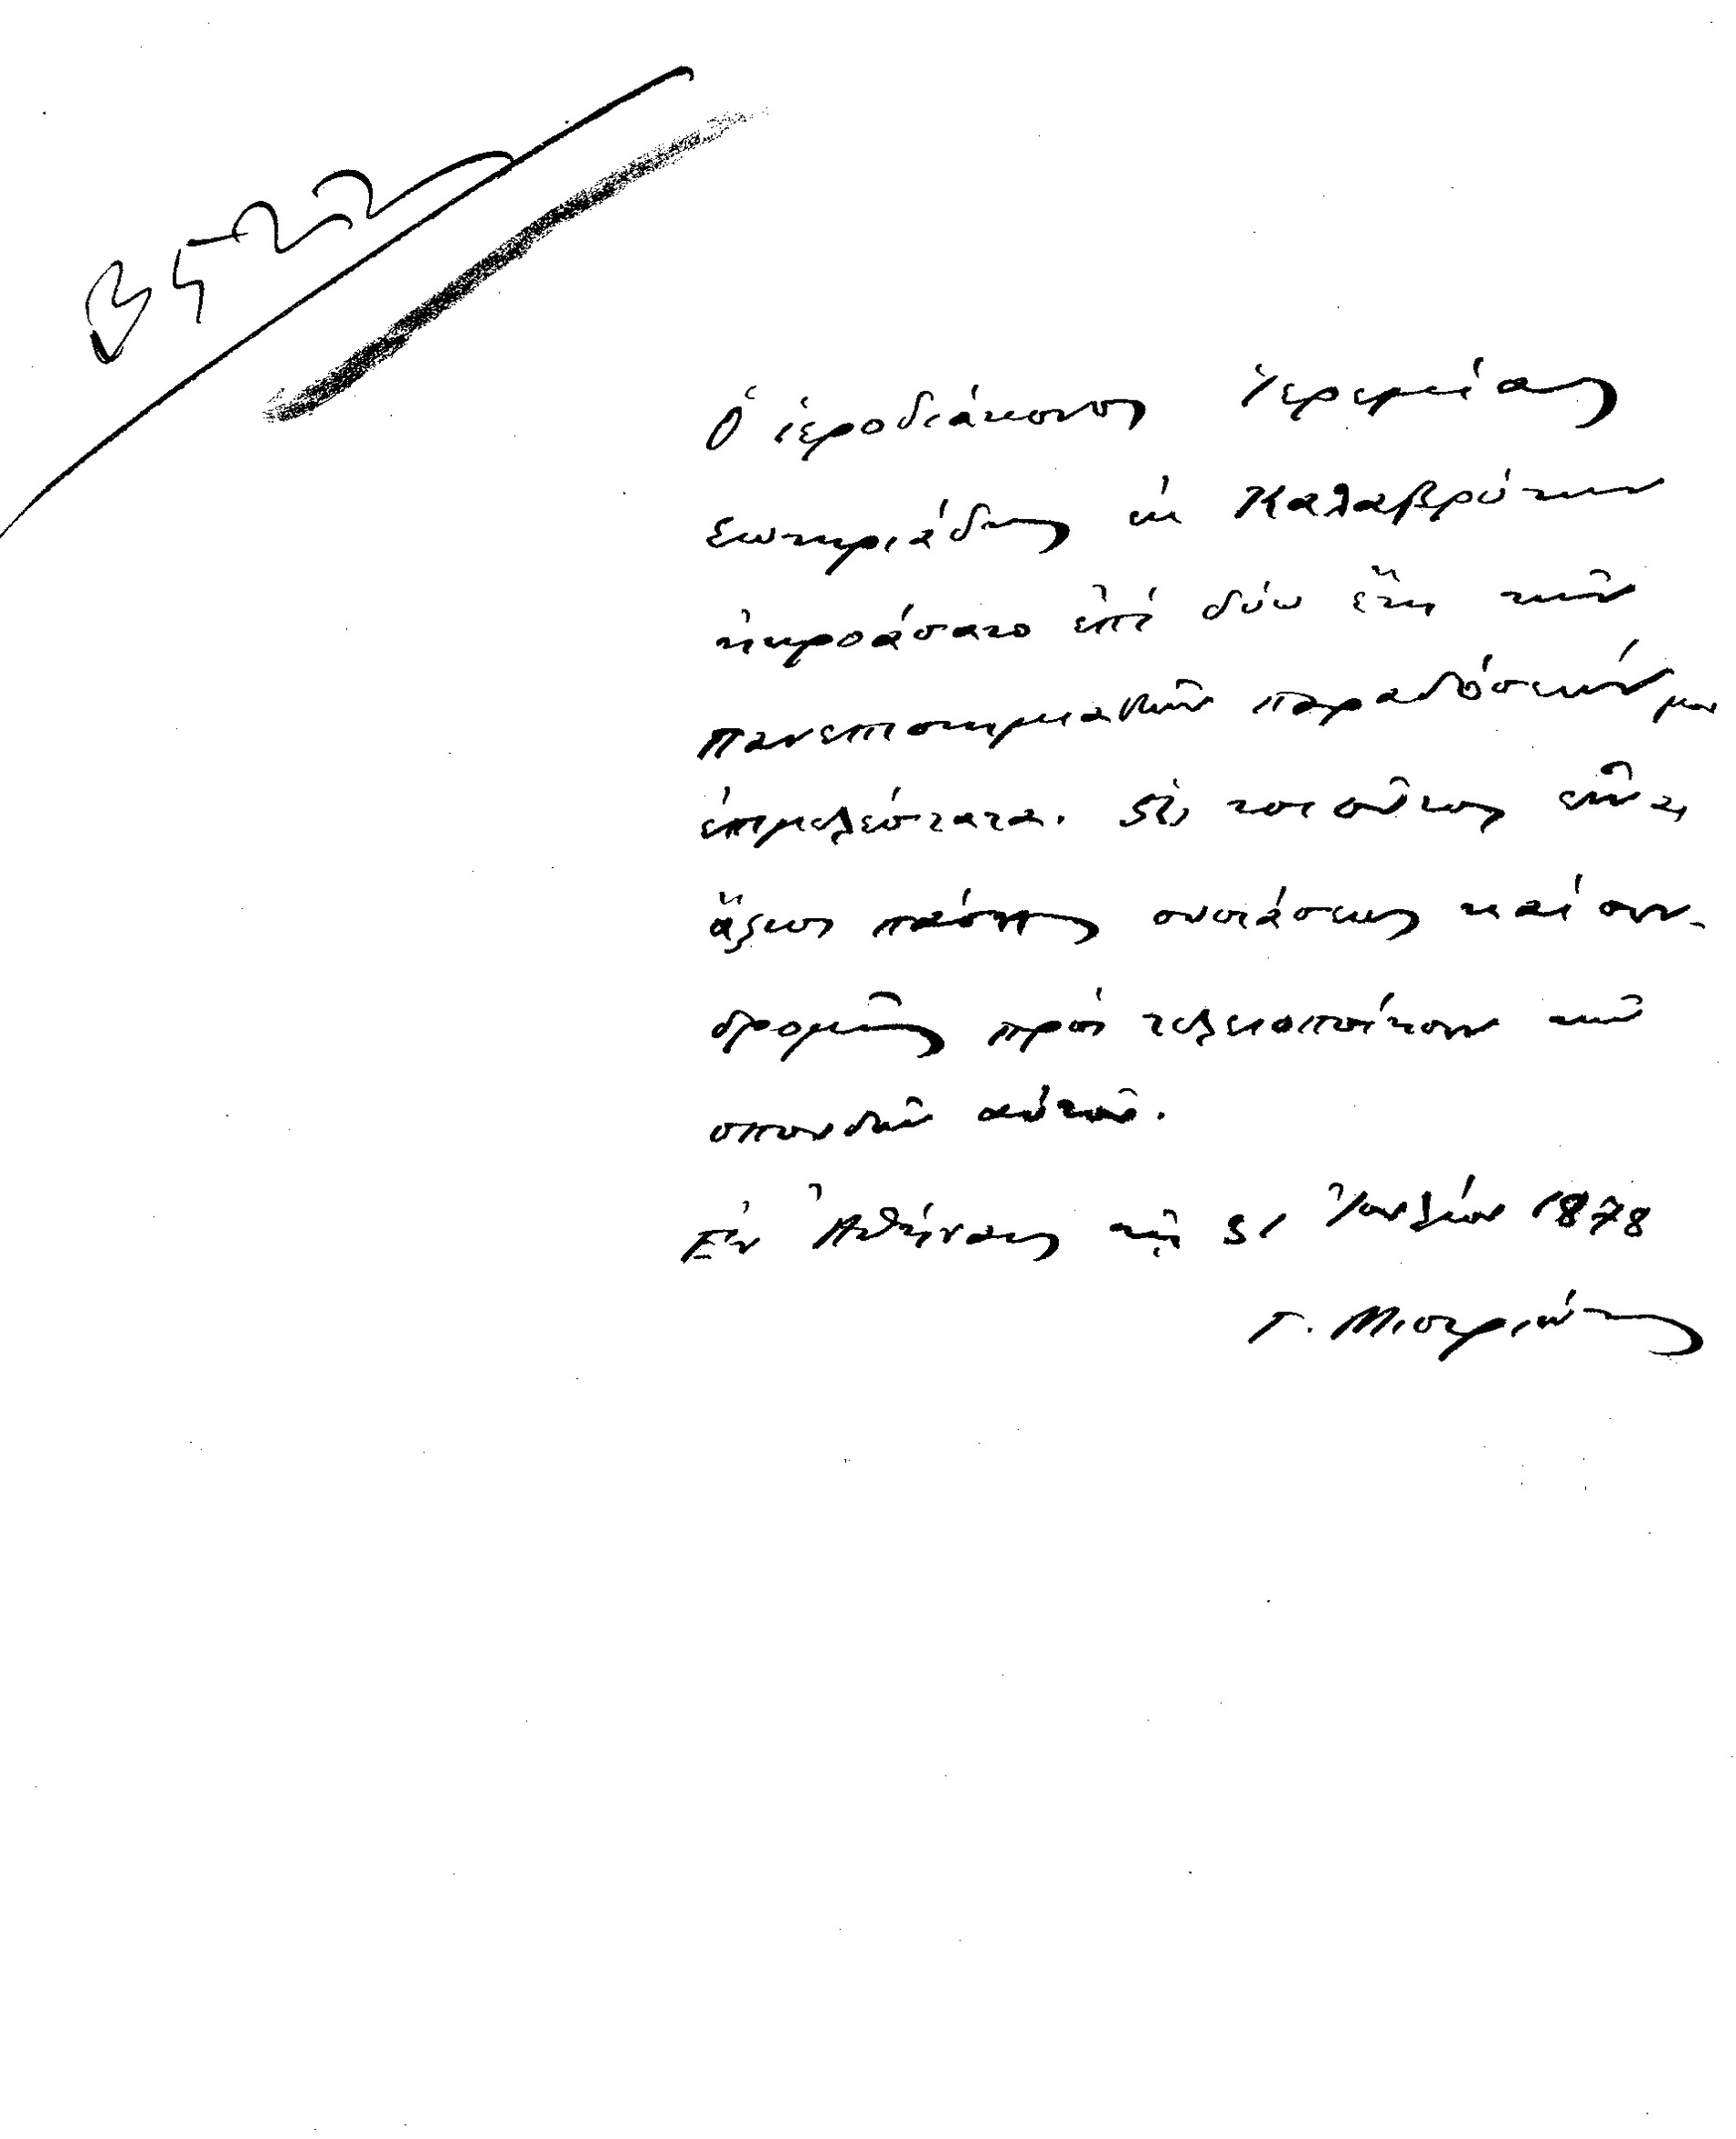 3522
Ὁ ἱεροδιάκονος Ἱερεμίας
Σωτηριάδης ἐκ Καλαβρύτων
ἠκροάσατο ἐπὶ δύω ἔτη τῶν
πανεπιστημιακῶν παραδόσεών μου
ἐπιμελέστατα. Ὡς τοιοῦτος εἶναι
ἄξιος πάσης συστάσεως καὶ συν-
δρομῆς πρὸς τελειοποίησιν τῶν
σπουδῶν αὐτοῦ.
Ἐν Ἀθήναις τῇ 31 Ἰουλίου 1878
Γ. Μιστριώτης